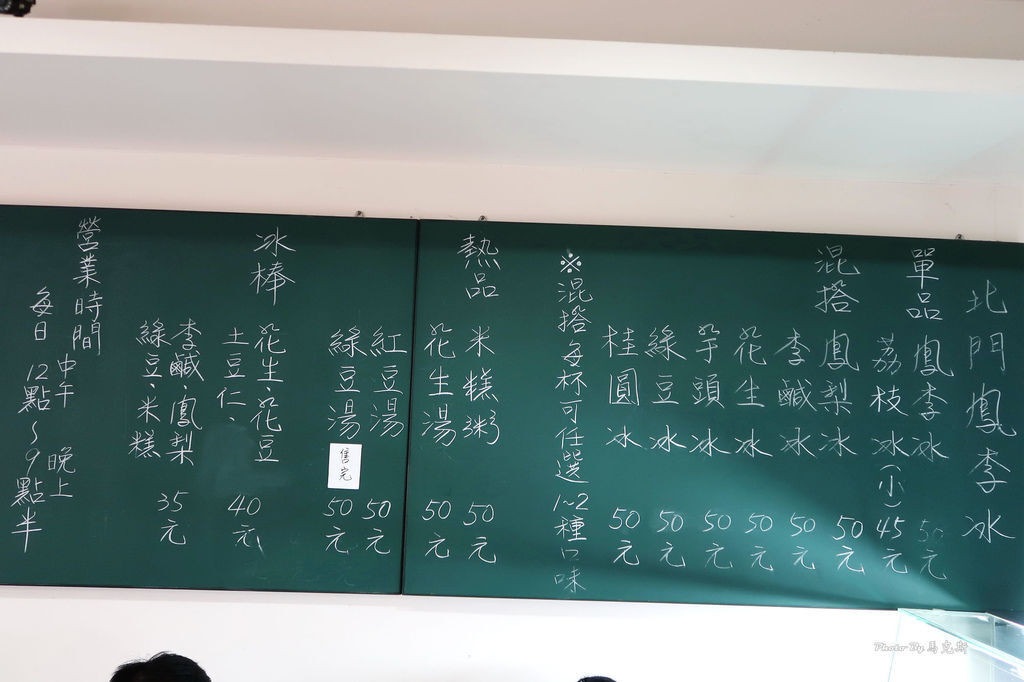 北門鳳李冰
單品 鳳李冰 50元
荔枝冰(小) 45元
混搭 鳳梨冰 50元
李鹹冰 50元
花生冰 50元
芋頭冰 50元
綠豆冰 50元
桂圓冰 50元
※混搭每杯可任選1~2種口味
熱品 米糕粥 50元
花生湯 50元
紅豆湯 50元
綠豆湯 售完 50元
冰棒 花生、花豆
土豆仁、 40元
李鹹、鳳梨
綠豆、米糕 35元
營業時間
中午 晚上
每日12點~9點半
Photo By 馬克斯